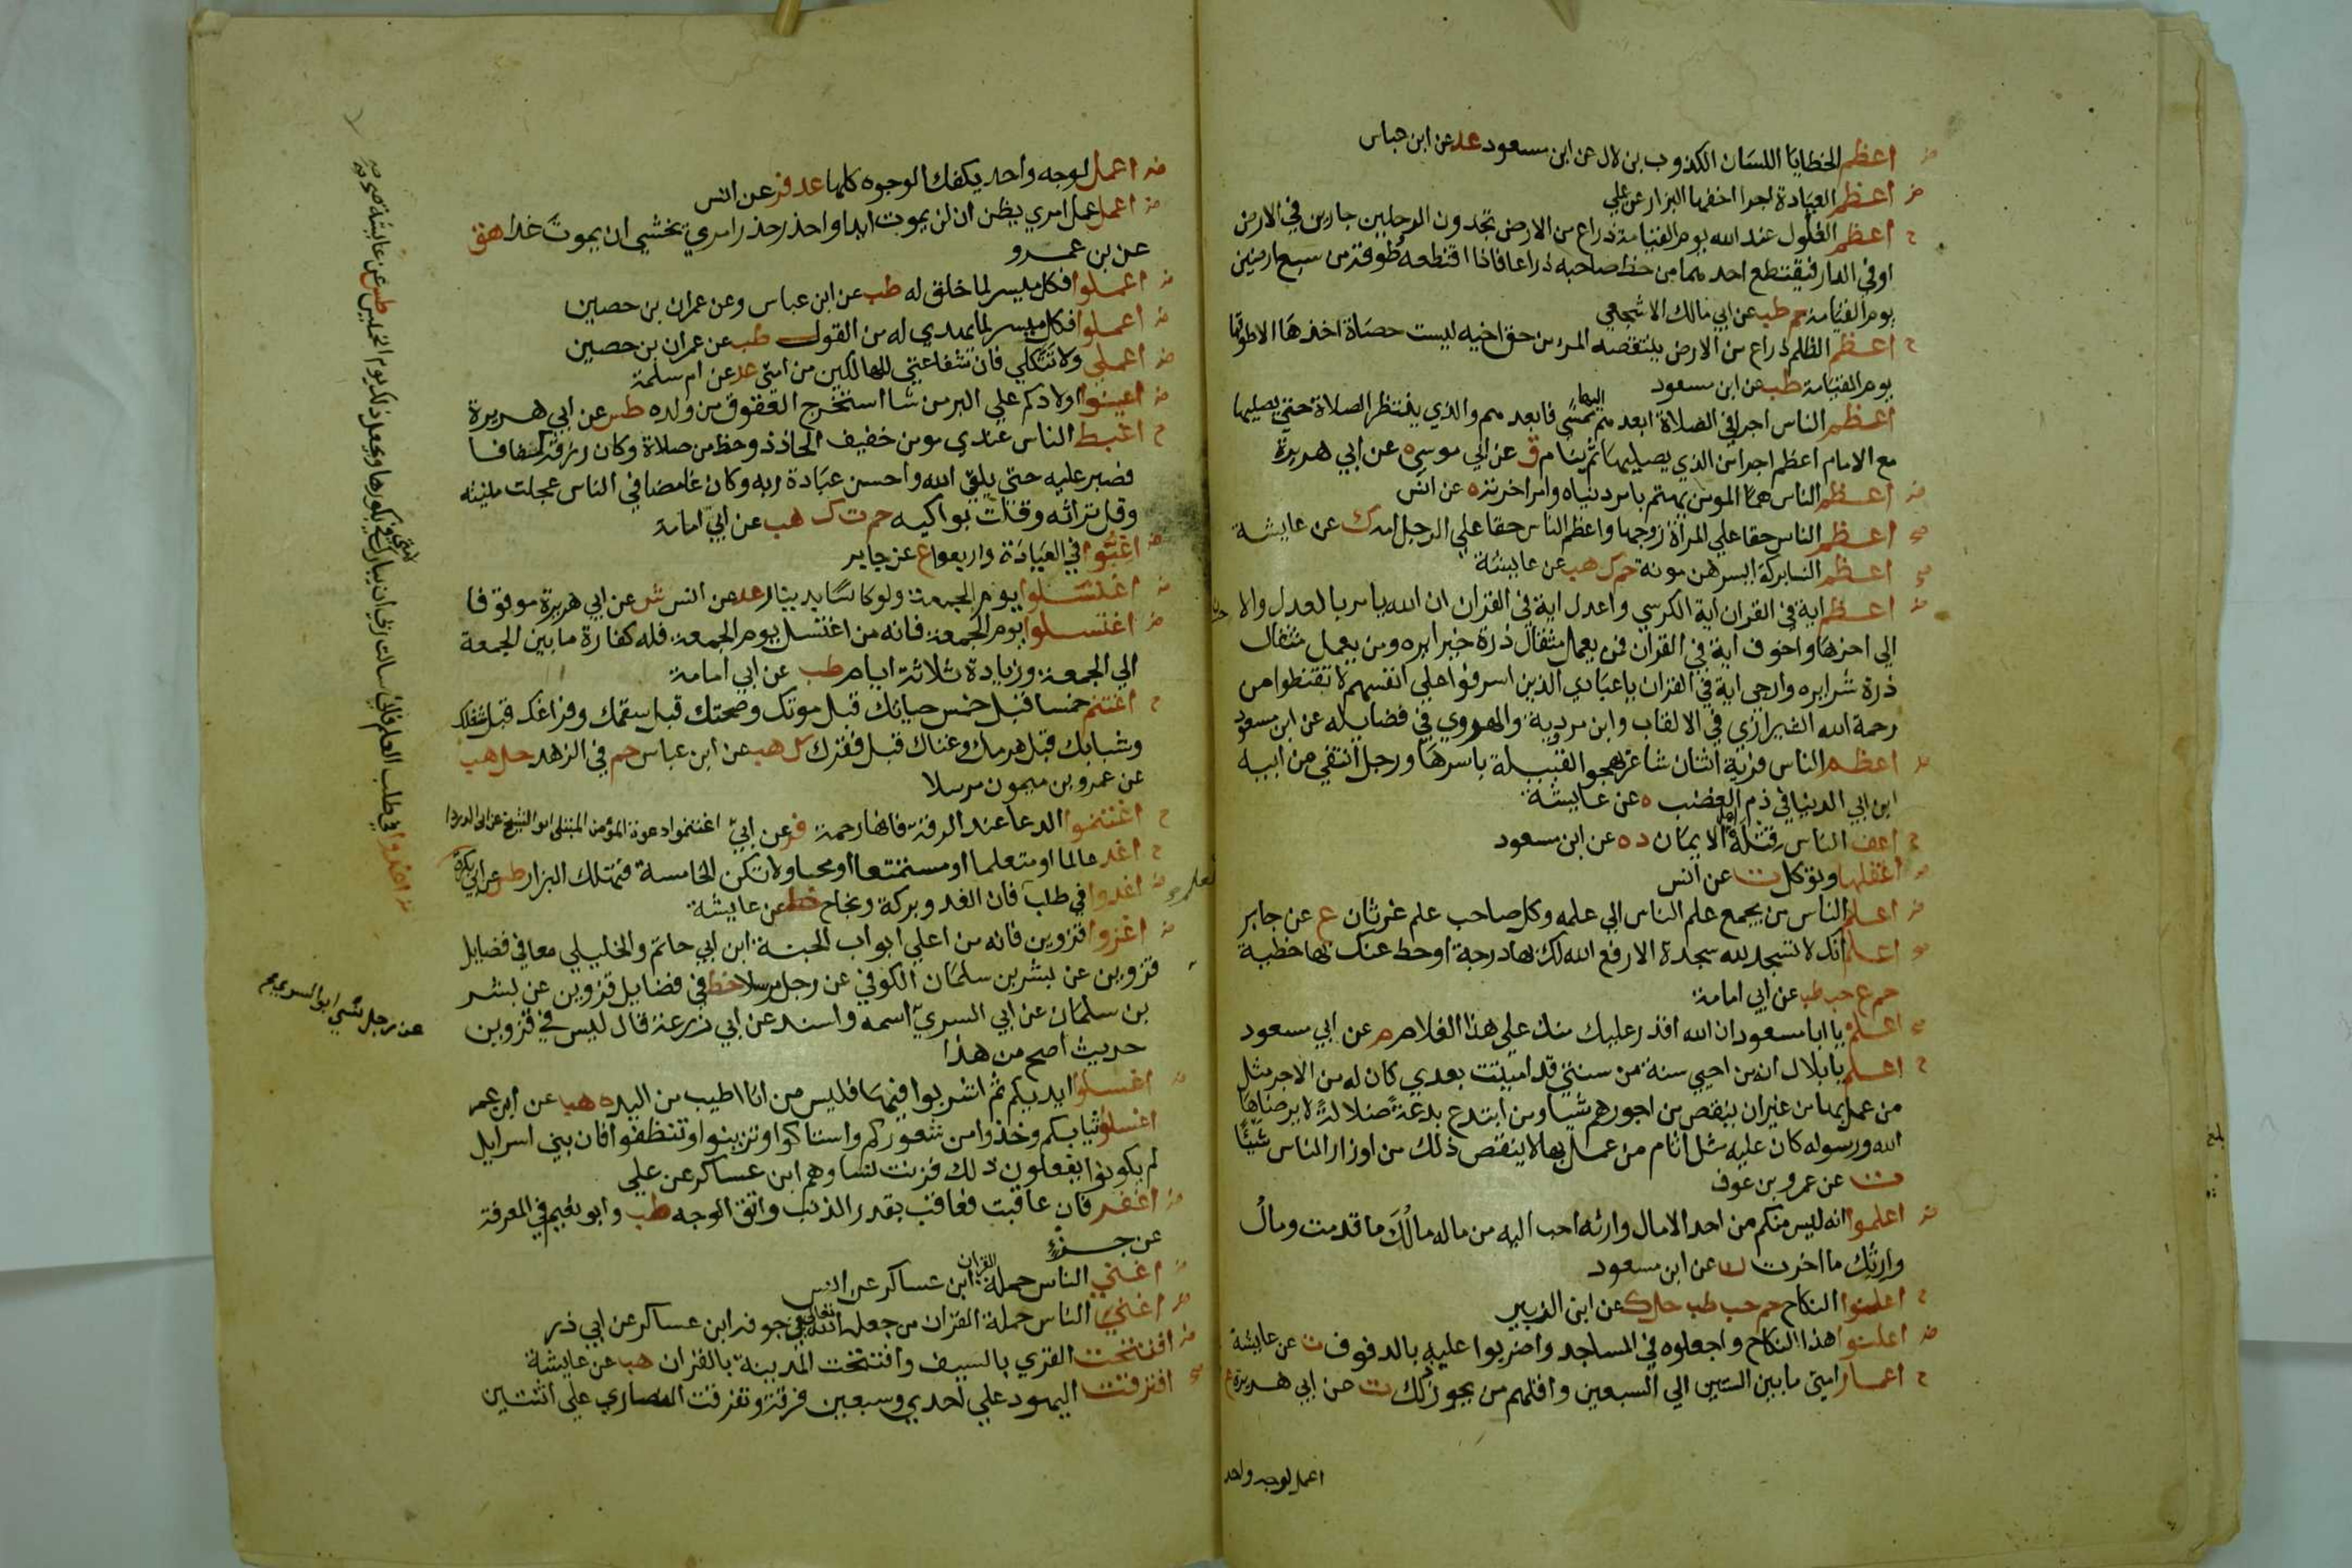 اعظم الخطايا اللسان الكذوب بن لال عن ابن مسعود عد عن ابن عباس
اعظم العيادة اجرا اخفها البزار عن علي
اعظم الغلول عند الله يوم القيامة ذراع من الارض تجدون الرجلين جارين في الارض
او في الدار فيقتطع احدهما من حظ صاحبه ذراعا فاذا اقتطعه طوقه من سبع ارضين
يوم القيامة حم طب عن ابي مالك الاشجعي
اعظم الظلم ذراع من الارض ينتقصه المرء من حق اخيه ليست حصاة اخذها الا طوقها
يوم القيامة طب عن ابن مسعود
اعظم الناس اجرا في الصلاة ابعدهم ممشى اليها فابعدهم والذي ينتظر الصلاة حتى يصليها
مع الامام اعظم اجرا من الذي يصليها ثم ينام ق عن ابي موسى ه عن ابي هريرة
اعظم الناس هما المومن يهتم بامر دنياه وامر اخرته ه عن انس
اعظم الناس حقا علي المراة زوجها واعظم الناس حقا علي الرجل امه ك عن عايشة
اعظم النسا بركة ايسرهن مونة حم ك هب عن عايشة
اعظم اية في القران اية الكرسي واعدل اية في القران ان الله يامر بالعدل والا حسان
الي اخرها واخوف اية في القران فمن يعمل مثقال ذرة خيرا يره ومن يعمل مثقال
ذرة شرا يره وارجي اية في القران يا عبادي الذين اسرفوا علي انفسهم لا تقنطوا من
رحمة الله الشيرازي في الالقاب وابن مردوية والهروي في فضايله عن ابن مسعود
اعظم الناس فرية اثنان شاعر يهجو القبيلة باسرها ورجل انتفي من ابيه
ابن ابي الدنيا في ذم الغضب ه عن عايشة
اعف الناس قتلة اهل الايمان د ه عن ابن مسعود
اعقلها وتوكل ت عن انس
اعلم الناس من يجمع علم الناس الي علمه وكل صاحب علم غرثان ع عن جابر
اعلم انك لا تسجد لله سجدة الا رفع الله لك بها درجة او حط عنك بها خطية
حم ع حب طب عن ابي امامة
اعلم يا ابا مسعود ان الله اقدر عليك منك علي هذا الغلام م عن ابي مسعود
اعلم يا بلال انه من احيي سنة من سنتي قد اميتت بعدي كان له من الاجر مثل
من عمل بها من غير ان ينقص من اجورهم شيا ومن ابتدع بدعة ضلالة لا يرضاها
الله ورسوله كان عليه مثل اثام من عمل بها لا ينقص ذلك من اوزار الناس شيئا
ت عن عمرو بن عوف
اعلموا انه ليس منكم من احد الا مال وارثه احب اليه من ماله مالك ما قدمت ومال
وارثك ما اخرت ن عن ابن مسعود
اعلنوا النكاح حم حب طب حل ك عن ابن الزبير
اعلنوا هذا النكاح واجعلوه في المساجد واضربوا عليه بالدفوف ت عن عايشة
اعمار امتي ما بين الستين الي السبعين واقلهم من يجوز ذلك ت عن ابي هريرة ع
اعمل لوجه واحد
اعمل لوجه واحد يكفك الوجوه كلها عد فر عن انس
اعمل عمل امري يظن ان لن يموت ابدا واحذر حذر امري يخشي ان يموت غدا هق
عن بن عمرو
اعملوا فكل ميسر لما خلق له طب عن ابن عباس وعن عمران بن حصين
اعملوا فكل ميسر لما يهدي له من القول طب عن عمران بن حصين
اعملي ولا تتكلي فان شفاعتي للهالكين من امتي عد عن ام سلمة
اعينوا اولادكم علي البر من شا استخرج العقوق من ولده طس عن ابي هريرة
اغبط الناس عندي مومن خفيف الحاذ ذو حظ من صلاة وكان رزقه كفافا
فصبر عليه حتي يلقي الله واحسن عبادة ربه وكان غامضا في الناس عجلت منيته
وقل تراثه وقلت بواكيه حم ت ك هب عن ابي امامة
اغبوا في العيادة واربعوا ع عن جابر
اغتسلوا يوم الجمعة ولو كاسا بدينار عد عن انس ش عن ابي هريرة موقوفا
اغتسلوا يوم الجمعة فانه من اغتسل يوم الجمعة فله كفارة ما بين الجمعة
الي الجمعة وزيادة ثلاثة ايام طب عن ابي امامة
اغتنم خمسا قبل خمس حياتك قبل موتك وصحتك قبل سقمك وفراغك قبل شغلك
وشبابك قبل هرمك وغناك قبل فقرك ك هب عن ابن عباس حم في الزهد حل هب
عن عمرو بن ميمون مرسلا
اغتنموا الدعا عند الرقة فانها رحمة فر عن ابي اغتنموا دعوة المؤمن المبتلى ابو الشيخ عن ابي الدردا
اغد عالما او متعلما او مستمعا او محبا ولا تكن الخامسة فتهلك البزار طس عن ابي بكرة
اغدوا في طلب العلم فان الغدو بركة ونجاح خط عن عايشة
اغزوا قزوين فانه من اعلي ابواب الجنة ابن ابي حاتم والخليلي معا في فضايل
قزوين عن بشر بن سلمان الكوفي عن رجل مرسلا خط في فضايل قزوين عن بشر
بن سلمان عن ابي السري اسمه واسند عن ابي زرعة قال ليس في قزوين
حديث اصح من هذا
اغسلوا ايديكم ثم اشربوا فيها فليس من انا اطيب من اليد ه هب عن ابن عمر
اغسلوا ثيابكم وخذوا من شعوركم واستاكوا وتزينوا وتنظفوا فان بني اسرايل
لم يكونوا يفعلون ذلك فزنت نساوهم ابن عساكر عن علي
اغفر فان عاقبت فعاقب بقدر الذنب واتق الوجه طب وابو نعيم في المعرفة
عن جزء
اغني الناس حملة القران ابن عساكر عن انس
اغني الناس حملة القران من جعله الله تعالي في جوفه ابن عساكر عن ابي ذر
افتتحت القري بالسيف وافتتحت المدينة بالقران هب عن عايشة
افترقت اليهود علي احدي وسبعين فرقة وتفرقت النصاري علي اثنتين
اغدوا في طلب العلم فاني سالت ربي ان يبارك لامتي في بكورها ويجعل ذلك يوم الخميس طس عن عايشة
عن رجل نسي ابو السري